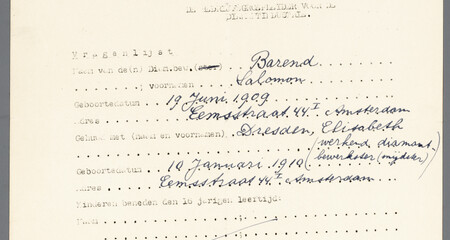 V r a g e n l i j s t
Naam van de(n) Barend
; voornamen Salomon
Geboortedatum 19 Juni 1909
Adres Eemsstraat 44 I Amsterdam
Gehuwd met (naam en voornamen) Dresden, Elisabeth
(werkend diamant-
bewerkster (snijdster)
Geboortedatum 10 Januari 1910
Adres Eemsstraat 44 I Amsterdam
Kinderen beneden den 16 jarigen leeftijd:
Naam